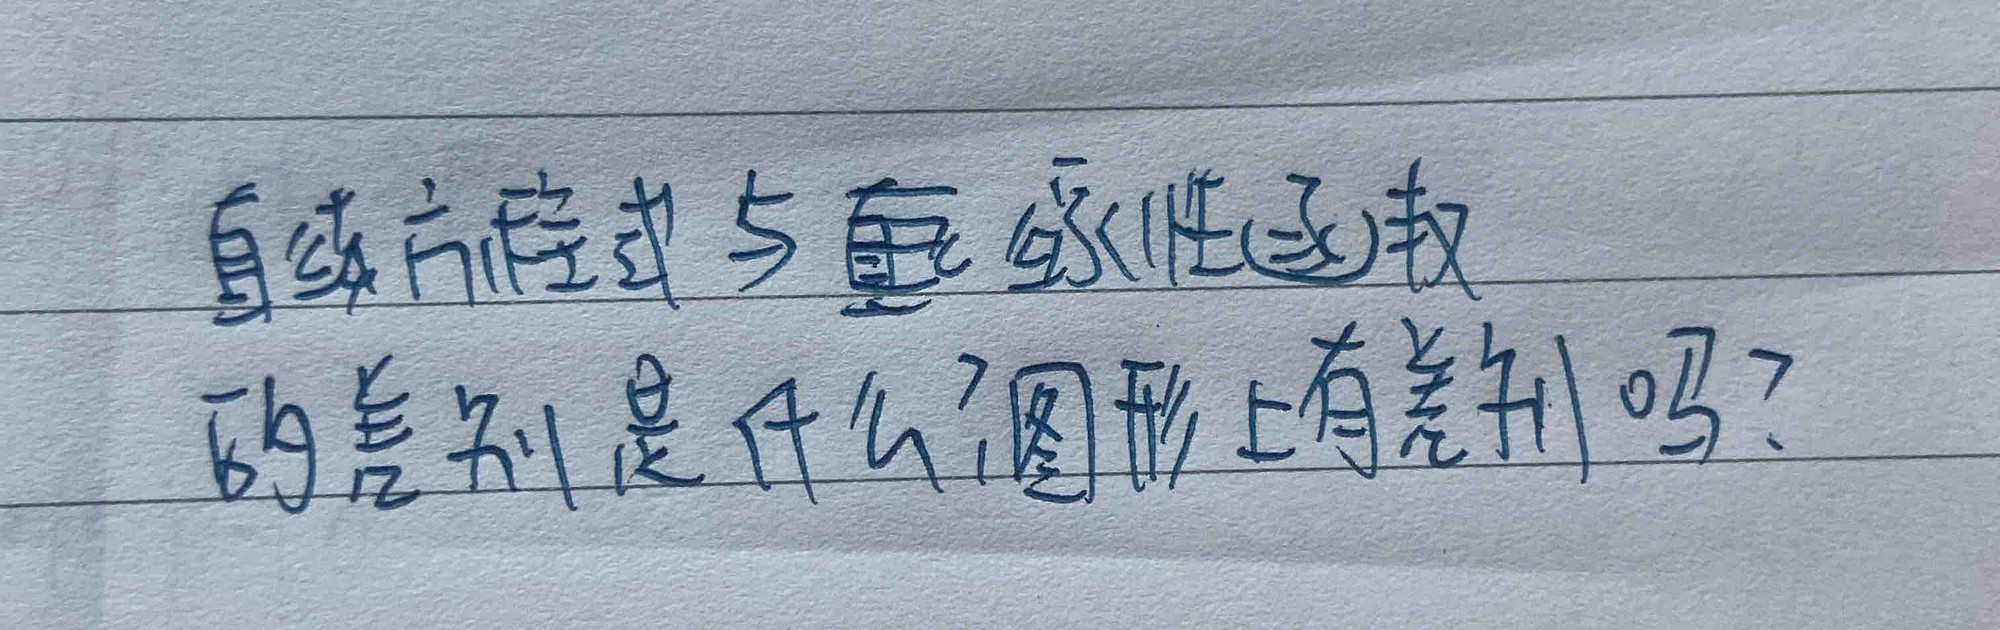 直线方程式与线性函数
的差别是什么?图形上有差别吗?